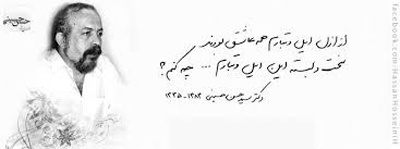 از ازل ایل و تبارم همه عاشق بودند
سخت دلبسته این ایل و تبارم ... چه کنم؟
دکتر سید حسن حسینی ۱۳۸۳-۱۳۳۵
facebook.com/HassanHosseiniH